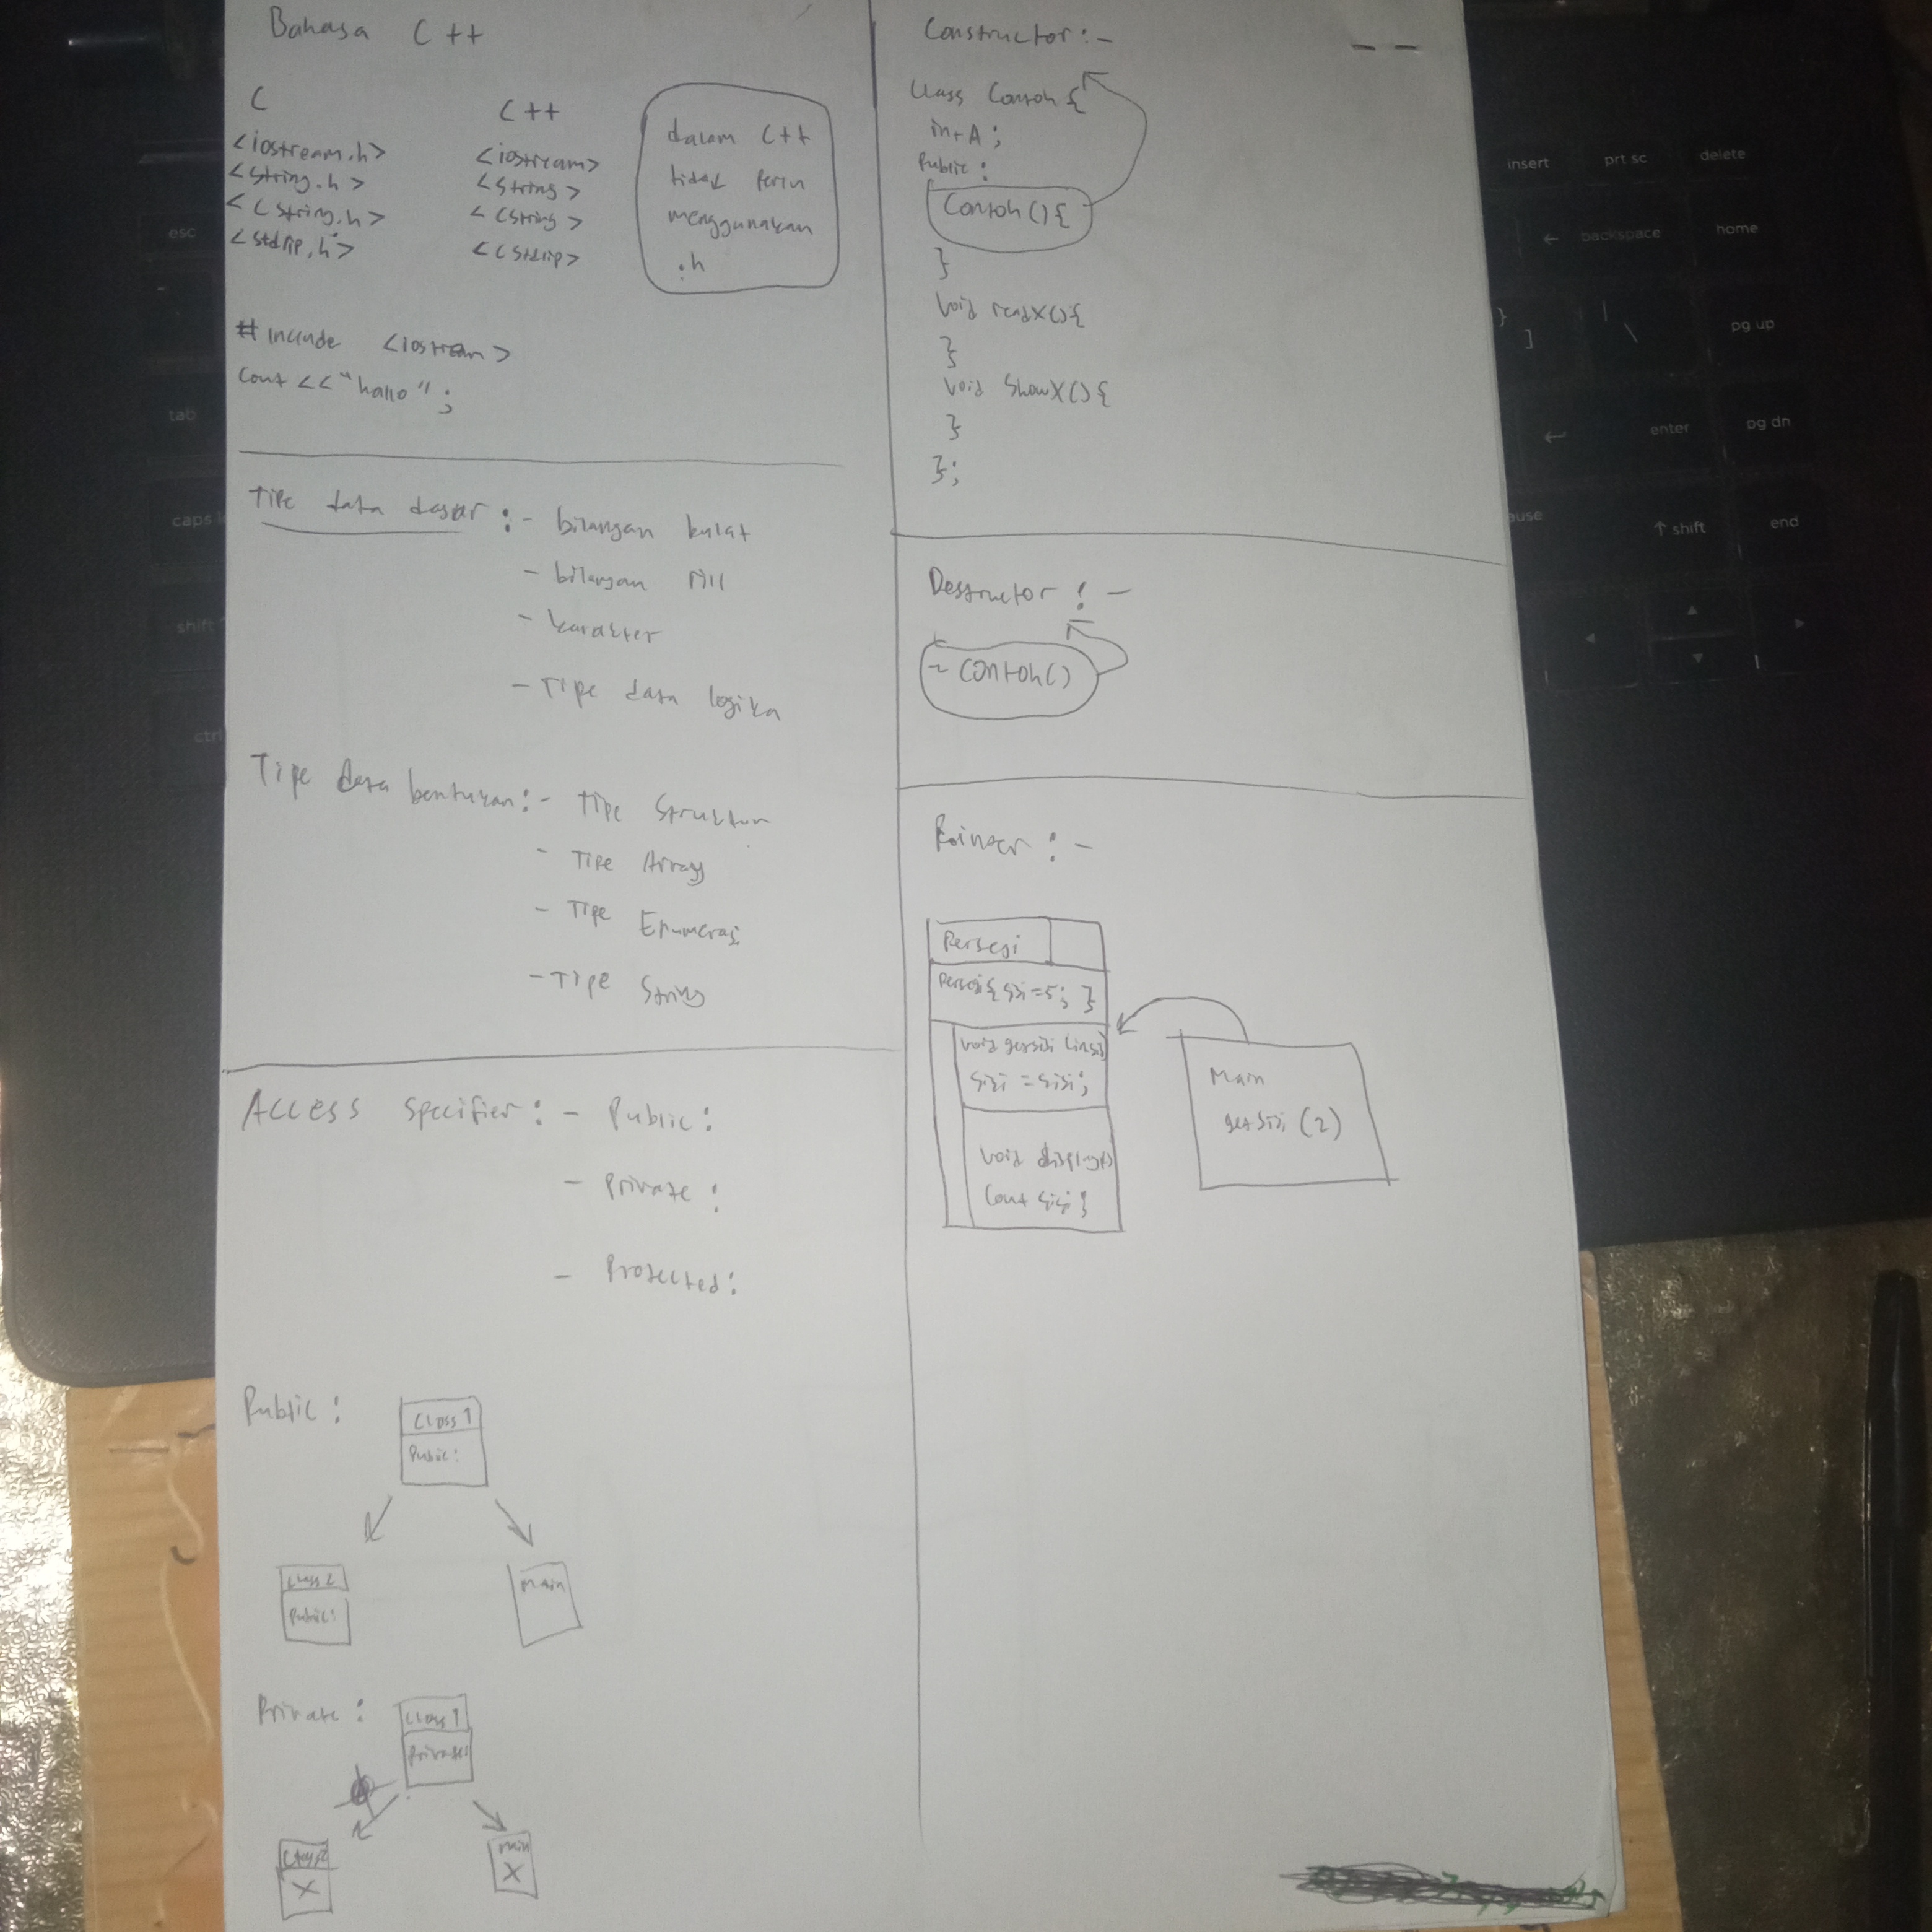 Bahasa C++
C
<iostream.h>
<String.h>
<CString.h>
<stdlip.h>
C++
<iostream>
<String>
<CString>
<CStdlip>
dalam C++
tidak perlu
menggunakan
.h
#include <iostream>
Cout << "hallo";
Tipe data dasar :- bilangan bulat
- bilangan rill
- karakter
- Tipe data logika
Tipe data bentukan:- Tipe Struktur
- Tipe Array
- Tipe Enumerasi
- Tipe String
Access specifier:- Public:
- Private:
- Protected:
Public:
Class 1
Public:
Class 2
Public:
Main
Private:
Class 1
Private:
Class 2
X
Main
X
Constructor:-
Class Contoh {
int A;
Public:
Contoh(){
}
Void readX(){
}
Void ShowX(){
}
};
Destructor:-
~Contoh()
Pointer:-
Persegi
Persegi{ sisi=5; }
Void getsisi
sisi = sisi;
Void display()
Cout sisi }
Main
getsisi (2)
insert
prt sc
delete
esc
backspace
home
pg up
tab
enter
pg dn
caps
shift
end
shift
ctrl